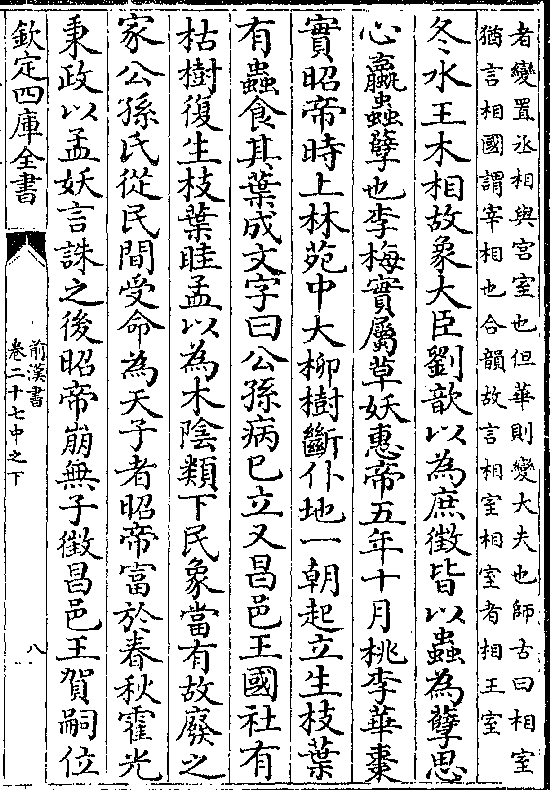 者變置丞相與宫室也但華則變大夫也師古曰相室
猶言相國謂宰相也合韻故言相室相室者相王室
冬水王木相故象大臣劉歆以為庶徵皆以蟲為孽思
心蠃蟲孽也李梅實屬草妖惠帝五年十月桃李華棗
實昭帝時上林苑中大柳樹斷仆地一朝起立生枝葉
有蟲食其葉成文字曰公孫病已立又昌邑王國社有
枯樹復生枝葉眭孟以為木陰類下民象當有故廢之
家公孫氏從民間受命為天子者昭帝富於春秋霍光
秉政以孟妖言誅之後昭帝崩無子徵昌邑王賀嗣位
欽定四庫全書
前漢書
卷二十七中之下
八